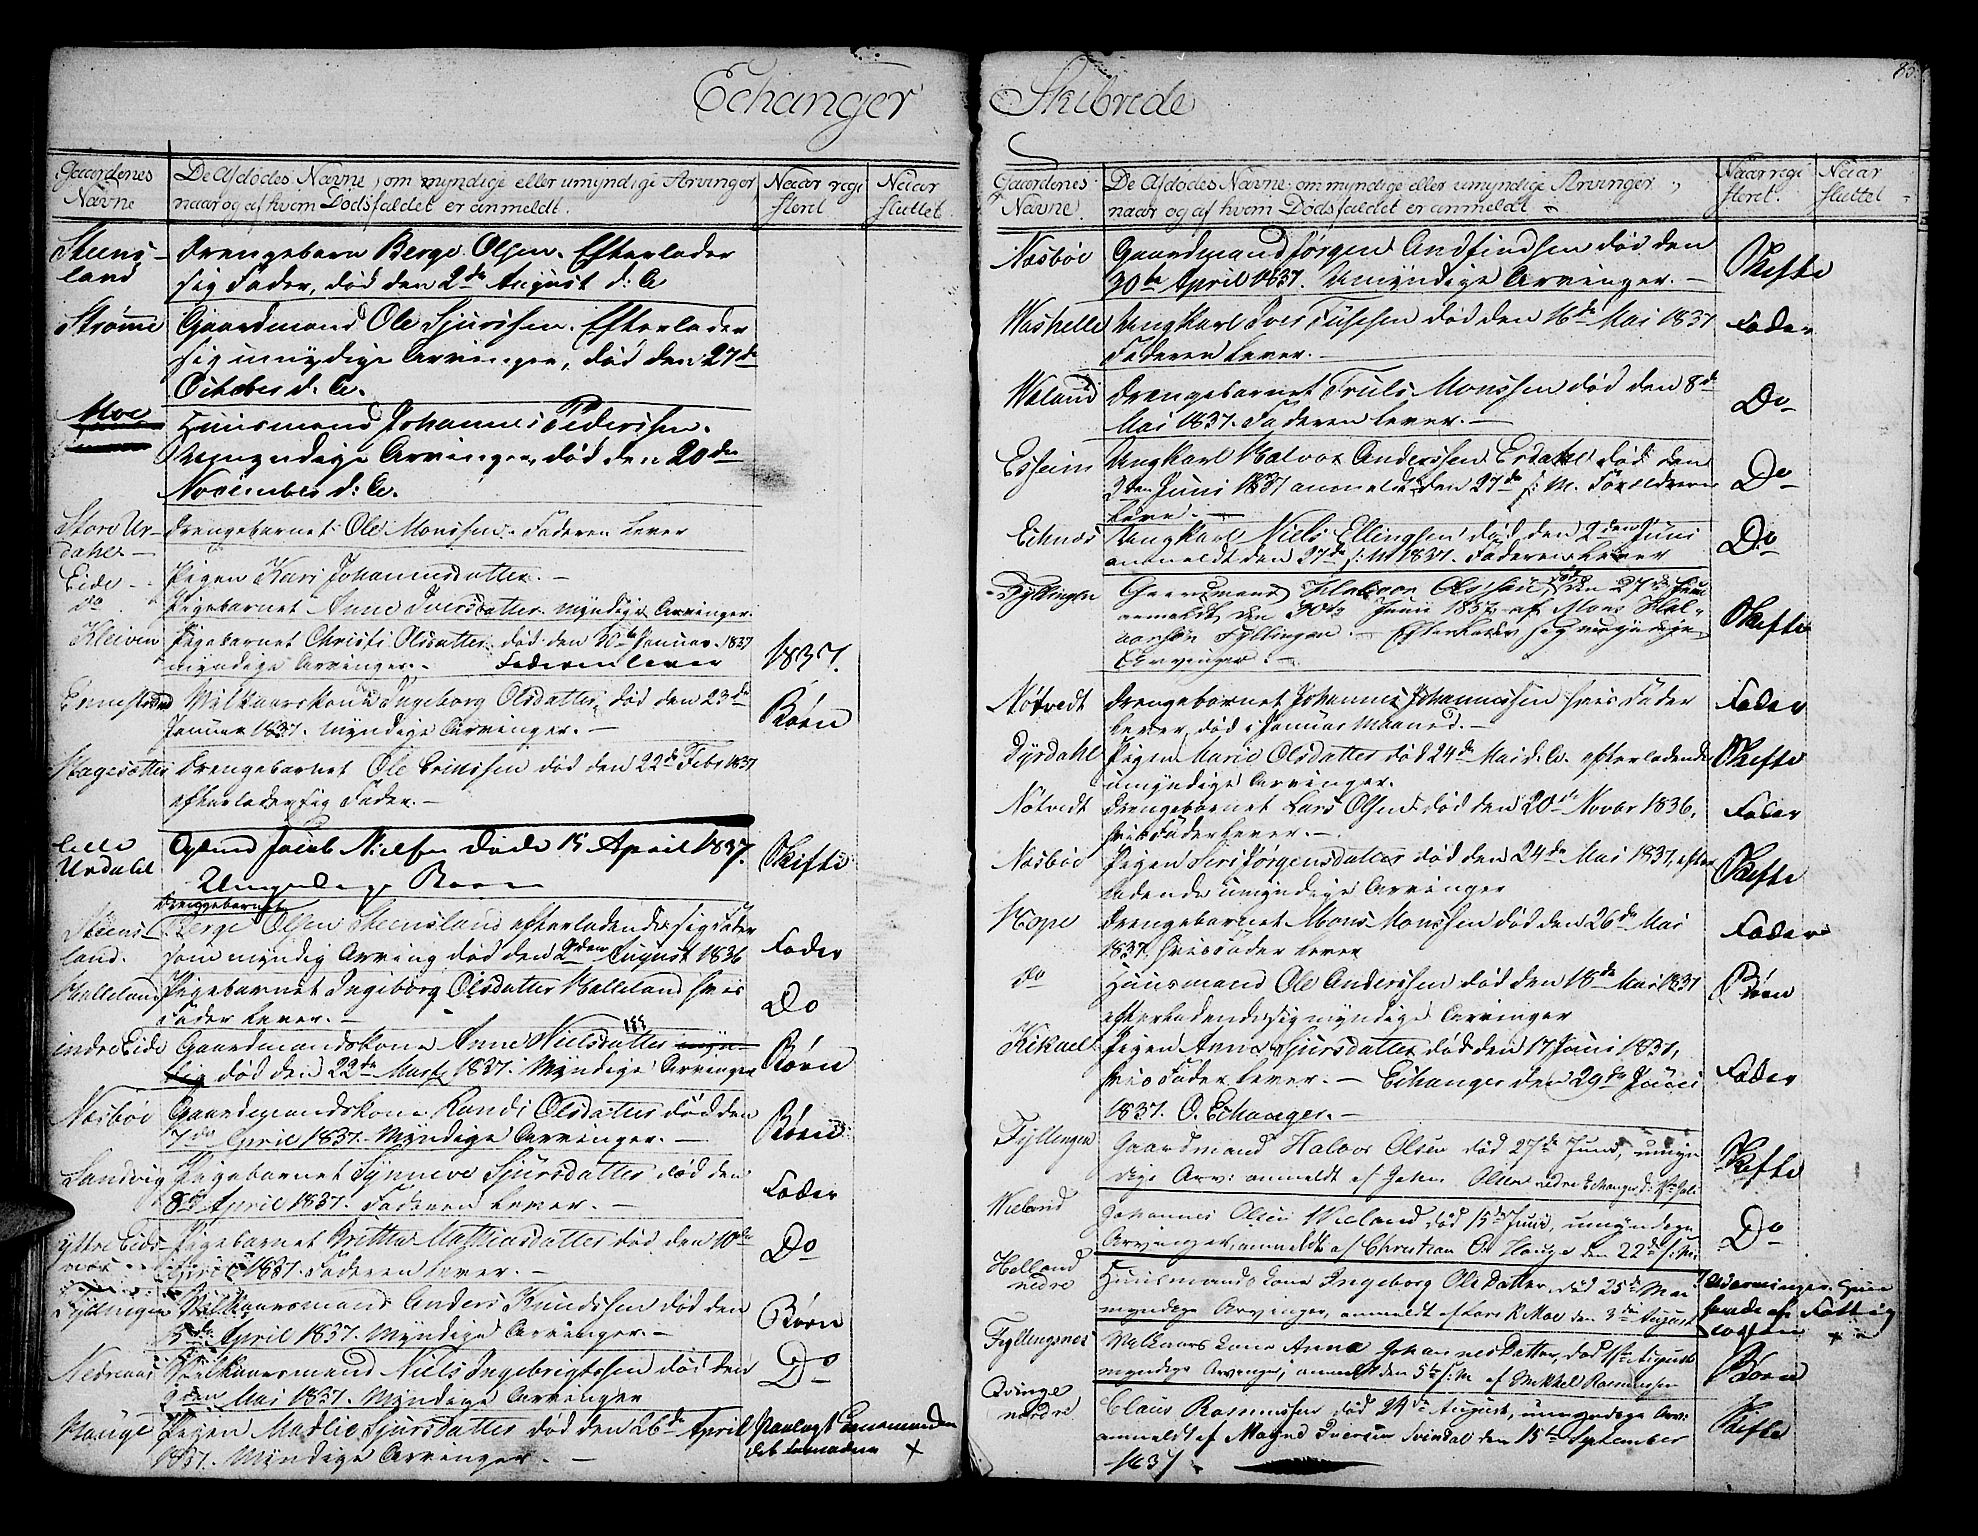 Echanger
Gaardenes Navne
De Afdödes Navne, om myndige eller umyndige Arvinger, naar og af hvem Dödsfaldet er anmeldt.
Naar registeret
Naar sluttet
Steensland
Drengebarn Berge Olsen. Efterlader
sig Fader, död den 2de August d: A.
Strömme
Gaardmand Ole Sjurssen. Efterlader
sig umÿdige Arvinger, död den 27de
October d: A.
Moe
Huusmand Johannes Pederssen.
Umyndige Arvinger, död den 20de
November d: A.
Store Urdahl
Drengebarnet Ole Monssen. Faderen lever
Eide
Pigen Kari Johannesdatter. –
do
Pigebarnet Anne Iversdatter. Myndige Arvinger.
Kleiven
Pigebarnet Christi Olsdatter, död den Januar 1837
myndige Arvinger. Faderen lever
1837.
Wilkaarskone Ingeborg Olsdatter, död den 23de
Januar 1837. Myndige Arvinger. –
Börn
Drengebarnet Ole Erikssen död den 22de Febr 1837
efterlader sig Fader. –
Lille Urdahl
Jacob Nielsen döde 15 April 1837.
Umyndige Börn
Skifte
Steensland.
Drengebarnet
Berge Olsen Steensland efterladende sig Fader
som myndig Arving död den 2den August 1836
Fader
Halleland
Pigebarnet Ingeborg Olsdatter Halleland hvis
Fader lever. –
Do
indre Eide
Gaardmandskone Anne Nielsdatter
död den 22de Marts 1837. Myndige Arvinger
Börn
Næsböe
Gaardmandskone Randi Olsdatter död den
7de April 1837. Myndige Arvinger. –
Börn
Sandvig
Pigebarnet Synneve Sjursdatter död den
8de April 1837. Faderen lever. –
Fader
yttre Eidsnæs
Pigebarnet Brithe Mathiasdatter död den 10de
April 1837. Faderen lever. –
Do
Fyllingen
Wilkaarsmand Anders Knudssen död den
15de April 1837. Myndige Arvinger –
Börn
Nedrenæs
Wilkaarsmand Niels Ingebrigtssen död den
9den Mai 1837. Myndige Arvinger
Do
Hauge
Pigen Madlie Sjursdatter död den 26de April
1837. Myndige Arvinger. –
Skibrede
85.
Gaardenes Navne.
De Afdödes Navne, om myndige eller umyndige Arvinger, naar og af hvem Dödsfaldet er anmeldt
Naar registeret.
Naar sluttet
Næsböe
Gaardmand Jörgen Andfindsen död den
30te April 1837. Umyndige Arvinger. –
Skifte
Ungkarl Iver död den 16de Mai 1837
Faderen lever. –
Fader
Drengebarnet Truls Monssen död den 8de
Mai 1837. Faderen lever. –
Do
Ungkarl Halvor Anderssen död den
2den Juni 1837 anmeldt den 27de s: M. Forældrene
leve. –
Do
Echnæs
Ungkarl Niels Ellingsen död den 2den Juni
anmeldt den 27de s: M 1837. Faderen lever
Do
Fyllingen
Gaardmand Halvor Olssen död den 27de Juni
anmeldt den 30te Junii 1837 af Mons Halvorsen Fyllingen. – Efterlader sig umyndige
Arvinger. –
Skifte
Nötvedt
Drengebarnet Johannes Johannessen hvis Fader
lever, död i Januar Maaned. –
Fader
Dyrdahl
Pigen Marie Olsdatter död 24de Mai d. A. efterladende
umyndige Arvinger.
Skifte
Nötvedt
Drengebarnet Lars Olsen död den 20de Novbr 1836,
hvis Fader lever. –
Fader
Næsböe
Pigen Siri Jörgensdatter död den 24de Mai 1837, efterladende umyndige Arvinger
Skifte
Hope
Drengebarnet Mons Monssen död den 26de Mai
1837. hvis Fader lever
Fader
do
Huusmand Ole Anderssen död den 18de Mai 1837
efterladende sig myndige Arvinger
Börn
Pigen Anna Sjursdatter död den 17 Juni 1837,
hvis Fader lever. – Echanger den 29de Junii
1837. O. Echanger. –
Fader
Fyllingen
Gaardmand Halvor Olsen död 27de Juni, umyndige Arv: anmeldt af
Skifte
Wieland
Johannes Olsen Wieland död 15de Juni, umyndige
Arvinger, anmeldt af Christian O. Hauge den 22de s: M.
Do
Helland nedre
Huusmandskone Ingeborg Ole Datter, död 25de Mai
myndige Arvinger, anmeldt af Lars R. Moe den 3die August
Fyllingsnes
Wilkaarskone Anna Johannesdatter, död August
myndige Arvinger, anmeldt den 5te s: M af Mikkel Rasmussen
Börn
Qvinge nordre
Claus Rasmussen död 24de August, umyndige Arv:
anmeldt af Magne Iversen Svindal den 15te September
1837
Skifte